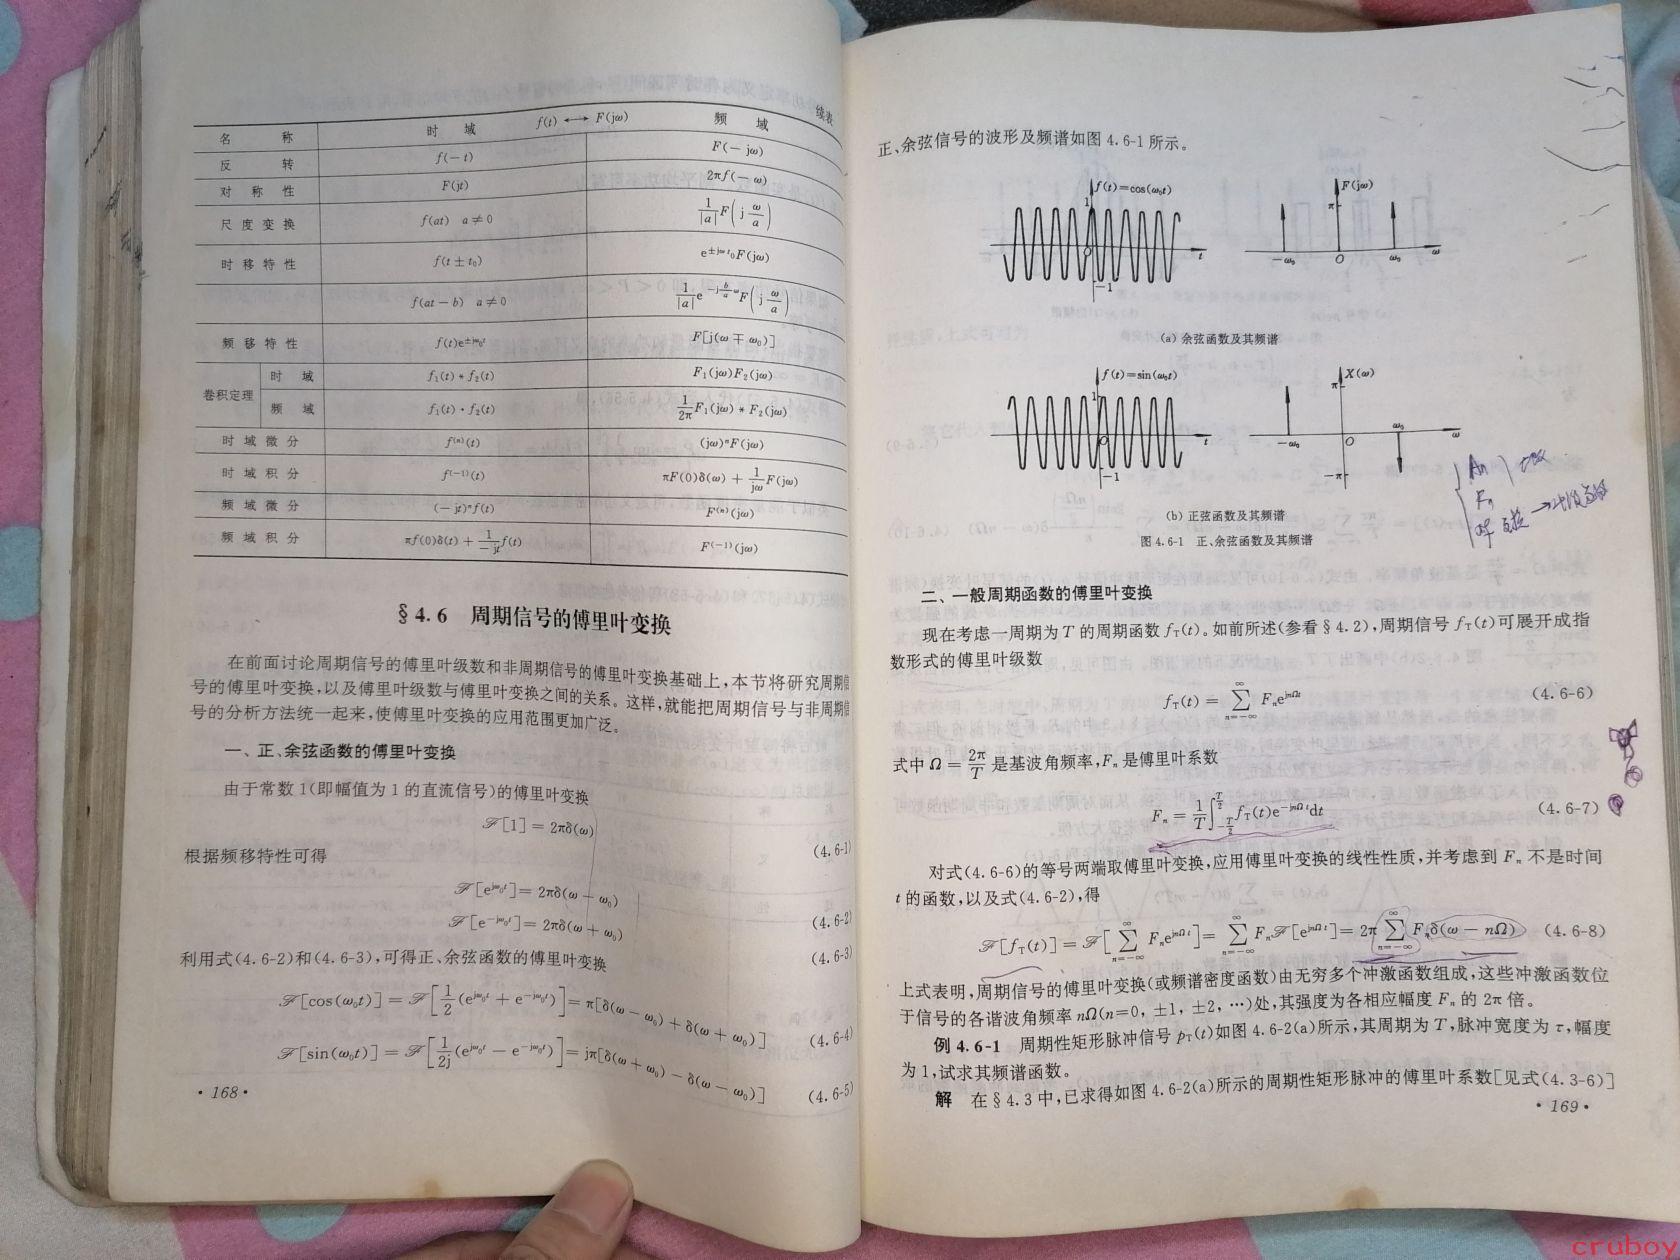 续表
名 称 时 域 f(t) ⟷ F(jω) 频 域
反 转 f(−t) F(−jω)
对 称 性 F(jt) 2πf(−ω)
尺 度 变 换 f(at) a≠0 1/|a| F(j ω/a)
时 移 特 性 f(t±t₀) e^{±jωt₀}F(jω)
f(at−b) a≠0 1/|a| e^{−j(b/a)ω}F(j ω/a)
频 移 特 性 f(t)e^{±jω₀t} F[j(ω∓ω₀)]
卷积定理 时 域 f₁(t)*f₂(t) F₁(jω)F₂(jω)
频 域 f₁(t)·f₂(t) 1/2π F₁(jω)*F₂(jω)
时 域 微 分 f⁽ⁿ⁾(t) (jω)ⁿF(jω)
时 域 积 分 f⁽⁻¹⁾(t) πF(0)δ(ω) + 1/jω F(jω)
频 域 微 分 (−jt)ⁿf(t) F⁽ⁿ⁾(jω)
频 域 积 分 πf(0)δ(t) + 1/−jt f(t) F⁽⁻¹⁾(jω)
§4.6 周期信号的傅里叶变换
在前面讨论周期信号的傅里叶级数和非周期信号的傅里叶变换基础上,本节将研究周期信
号的傅里叶变换,以及傅里叶级数与傅里叶变换之间的关系。这样,就能把周期信号与非周期信
号的分析方法统一起来,使傅里叶变换的应用范围更加广泛。
一、正、余弦函数的傅里叶变换
由于常数1(即幅值为1的直流信号)的傅里叶变换
ℱ[1] = 2πδ(ω) (4.6-1)
根据频移特性可得
ℱ[e^{jω₀t}] = 2πδ(ω − ω₀) (4.6-2)
ℱ[e^{−jω₀t}] = 2πδ(ω + ω₀) (4.6-3)
利用式(4.6-2)和(4.6-3),可得正、余弦函数的傅里叶变换
ℱ[cos(ω₀t)] = ℱ[1/2(e^{jω₀t} + e^{−jω₀t})] = π[δ(ω − ω₀) + δ(ω + ω₀)] (4.6-4)
ℱ[sin(ω₀t)] = ℱ[1/2j(e^{jω₀t} − e^{−jω₀t})] = jπ[δ(ω + ω₀) − δ(ω − ω₀)] (4.6-5)
·168·
正、余弦信号的波形及频谱如图4.6-1所示。
f(t)=cos(ω₀t) F(jω)
1 π
O t −ω₀ O ω₀ ω
−1
(a) 余弦函数及其频谱
f(t)=sin(ω₀t) X(ω)
1 π
O t −ω₀ O ω₀ ω
−1 −π
(b) 正弦函数及其频谱
图4.6-1 正、余弦函数及其频谱
An
Fn
二、一般周期函数的傅里叶变换
现在考虑一周期为T的周期函数f_T(t)。如前所述(参看§4.2),周期信号f_T(t)可展开成指
数形式的傅里叶级数
f_T(t) = ∑_{n=−∞}^{∞} Fₙe^{jnΩt} (4.6-6)
式中Ω = 2π/T 是基波角频率,Fₙ是傅里叶系数
Fₙ = 1/T ∫_{−T/2}^{T/2} f_T(t)e^{−jnΩt}dt (4.6-7)
对式(4.6-6)的等号两端取傅里叶变换,应用傅里叶变换的线性性质,并考虑到Fₙ不是时间
t的函数,以及式(4.6-2),得
ℱ[f_T(t)] = ℱ[∑_{n=−∞}^{∞} Fₙe^{jnΩt}] = ∑_{n=−∞}^{∞} Fₙℱ[e^{jnΩt}] = 2π∑_{n=−∞}^{∞} Fₙδ(ω − nΩ) (4.6-8)
上式表明,周期信号的傅里叶变换(或频谱密度函数)由无穷多个冲激函数组成,这些冲激函数位
于信号的各谐波角频率nΩ(n=0, ±1, ±2, …)处,其强度为各相应幅度Fₙ的2π倍。
例4.6-1 周期性矩形脉冲信号p_T(t)如图4.6-2(a)所示,其周期为T,脉冲宽度为τ,幅度
为1,试求其频谱函数。
解 在§4.3中,已求得如图4.6-2(a)所示的周期性矩形脉冲的傅里叶系数[见式(4.3-6)]
·169·
cruboy